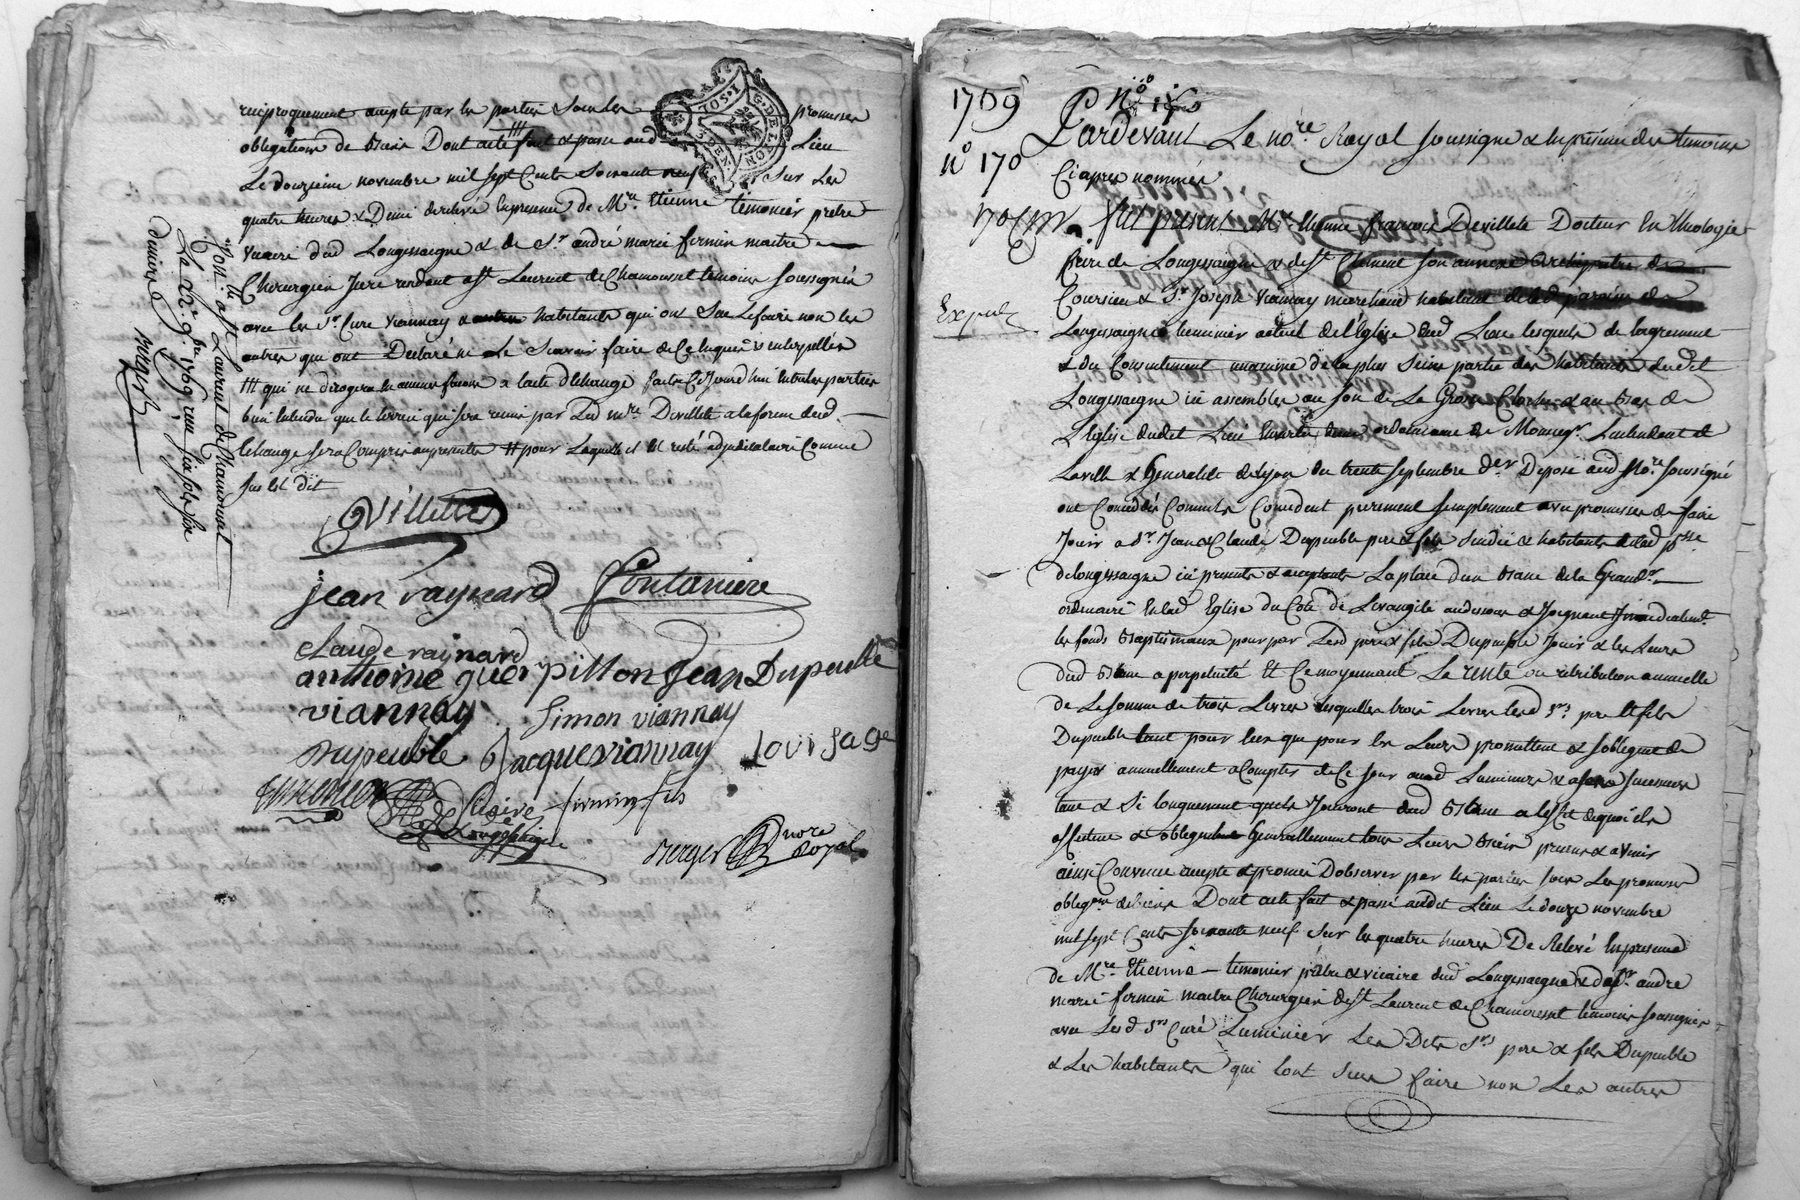 reciproquement accepté par les parties sous les promesses
obligations de biens Dont acte fait & passé aud Lieu
Le douzieme novembre mil sept Cents soixante neuf sur les
quatre heures & Demi de relevé En presence de Mre. Etienne temonier pretre
vicaire dud Longessaigne & de Sr. andré marie fermin maitre
Chirurgien Juré residant a st Laurent de Chamousset temoins soussignés
avec les Sr. Curé viannay & habitants qui ont Sceu Le faire non les
autres qui ont Declaré ne Le Scavoir faire de Ce Enquis & interpellés
qui ne derogera En aucune facon a l'acte d'Echange fait Ce Jourd'hui Entre les parties
bien Entendu que le terrein qui sera remis par Led mre Devillette a la forme dud
Echange sera Compris au present # pour Laquelle il Est resté adjudicataire Comme
sus Est dit
Con. a st Laurent de Chamousset
Le 22 9bre 1769 reçu six sols six
deniers
Villette
jean raynard Fontaniere
claude raynard
anthoine guerpillon Jean Dupeuble
viannay Simon viannay
Dupeuble Jacque viannay
temonier firmin fils
De Longessaigne
Berger nore
Royal
1769
no 170
Pardevant Le nore Royal soussigné & En presence des temoins
Ci apres nommés
fut present Mre Etienne francois Devillette Docteur En theologie
Curé de Longessaigne & de st Clement son annexe archipretre de
Coursieu & Sr Joseph Viannay marchand habitant de lad paroisse de
Longessaigne Luminier actuel de l'Eglise dud Lieu lesquels de l'agrement
& du Consentement unanime de la plus Saine partie des habitants dudit
Longessaigne ici assemblés au son de La Grosse Cloche & au bas de
L'Eglise dudit Lieu En vertu dune ordonnance de Monseigr. L'intendant de
La ville & Generalité de Lyon du trente septembre der Deposé aud Nore soussigné
ont Concedés Comme Ils Concedent purement simplement avec promesse de faire
Jouir a Sr Jean & Claude Dupeuble pere & fils Sindic & habitants de lad psse
de longessaigne ici presents & acceptants La place d'un banc de la Grandr.
ordinaire En lad Eglise du Coté de L'evangile audessous & Joignant Immediatemt.
les fonds baptismaux pour par Lesd pere & fils Dupeuble Jouir & les Leurs
dud banc a perpetuité Et Ce moyennant La rente ou retribution annuelle
de La somme de trois Livres Lesquelles trois Livres Lesd Srs pere & fils
Dupeuble tant pour Eux que pour les Leurs promettent & s'obligent de
payer annuellement a Compter de Ce Jour aud Luminier & a ses successeurs
tant & Si longuement qu'ils Jouiront dud banc a l'effet de quoi ils
affectent & obligent Generallement tous Leurs biens presents & avenir
ainsi Convenu accepté & promis D'observer par les parties sous Les promesses
obligons de biens Dont acte fait & passé audit Lieu Le douze novembre
mil sept Cents soixante neuf sur les quatre heures De Relevé En presence
de Mre. Etienne temonier pretre & vicaire dud Longessaigne & de Sr. andré
marie fermin maitre Chirurgien de st Laurent de Chamousset temoins soussignés
avec Lesd Srs Curé Luminier Les Dits Srs pere & fils Dupeuble
& Les habitants qui L'ont Sceu faire non Les autres